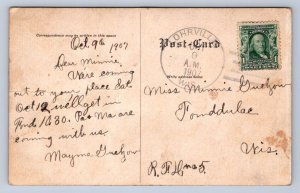 Correspondence may be written in this space
Oct 9th 1907
Dear Minnie,
We are coming
out to your place Sat.
Oct 12 will get in
Fond 1030. Pa & Ma are
coming with us.
Mayme Guelzow
Post-Card
Write address below
LOHRVILLE
A.M.
1907
WIS.
Miss Minnie Guelzow
Fonddulac
Wis.
R.F.D. no 5.